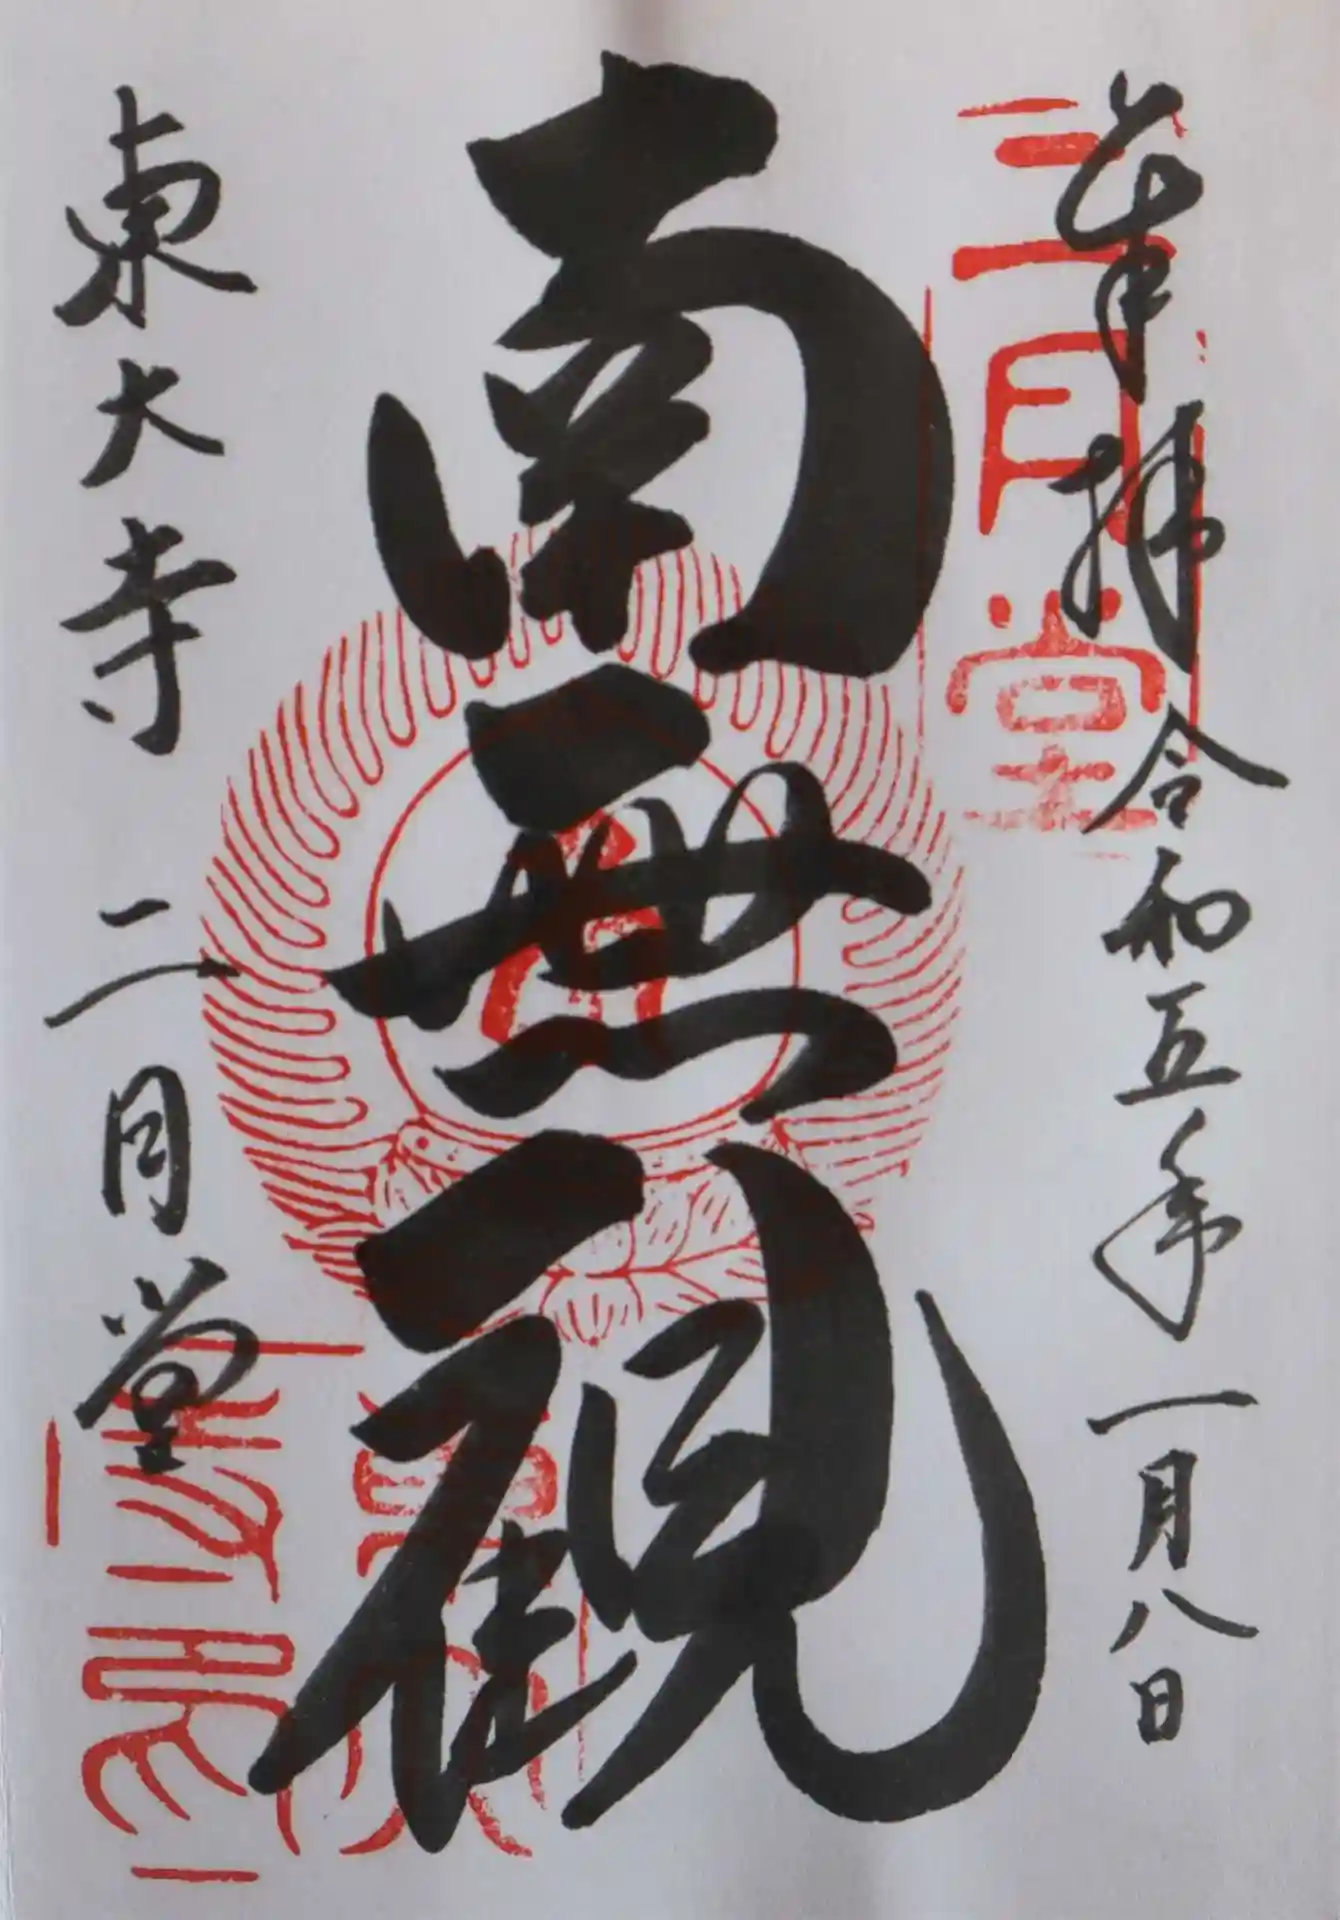 奉拝 令和五年一月八日
二月堂
南無観
東大寺 二月堂